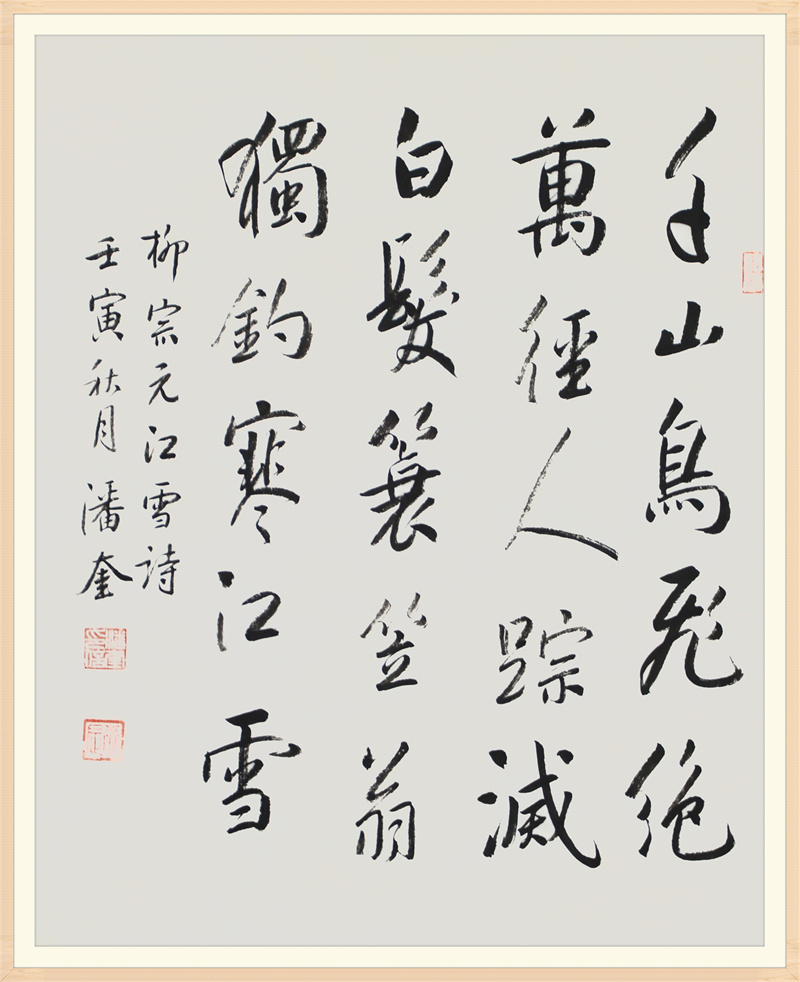 千山鳥飛絶
萬徑人踪滅
白髮簑笠翁
獨釣寒江雪
柳宗元江雪詩
壬寅秋月潘奎